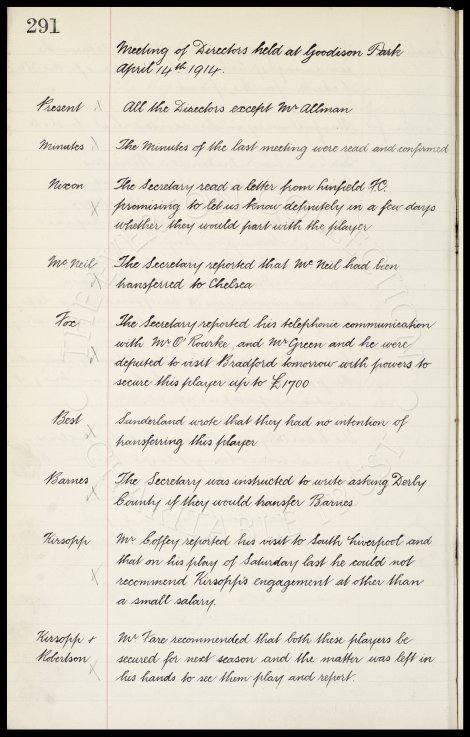 291
Meeting of Directors held at Goodison Park
April 14th 1914.
Present x All the Directors except Mr Allman
Minutes x The Minutes of the last meeting were read and confirmed
Nixon The Secretary read a letter from Linfield F.C.
x promising to let us know definitely in a few days
whether they would part with the player
Mc Neil The Secretary reported that Mc Neil had been
x transferred to Chelsea
Fox The Secretary reported his telephonic communication
with Mr O'Rourke and Mr Green and he were
x deputed to visit Bradford tomorrow with powers to
secure this player up to £1700
Best Sunderland wrote that they had no intention of
x transferring this player
Barnes The Secretary was instructed to write asking Derby
x County if they would transfer Barnes
Kirsopp Mr Coffey reported his visit to South Liverpool and
that on his play of Saturday last he could not
x recommend Kirsopp's engagement at other than
a small salary.
Kirsopp + Mr Fare recommended that both these players be
Robertson secured for next season and the matter was left in
x his hands to see them play and report.